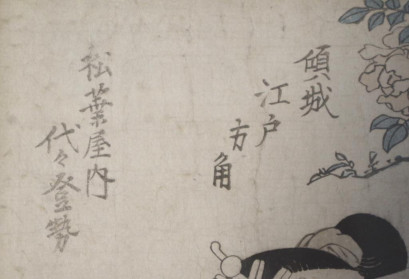 傾城
江戸
方角
松葉屋内
代々登勢